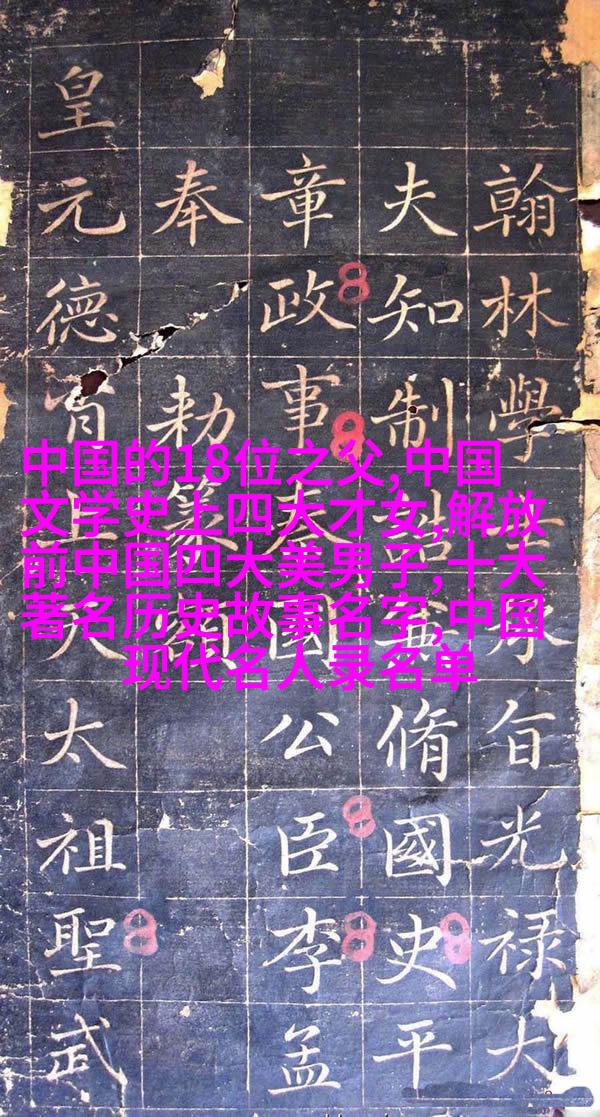 中国的18位之父,中国
文学史上四大才女,解放
前中国四大美男子,十大
著名历史故事名字,中国
现代名人录名单
翰林學承旨光禄大
夫知制誥兼脩國史平
章政事秦國公臣李孟
奉勅篆
皇元德太祖聖武